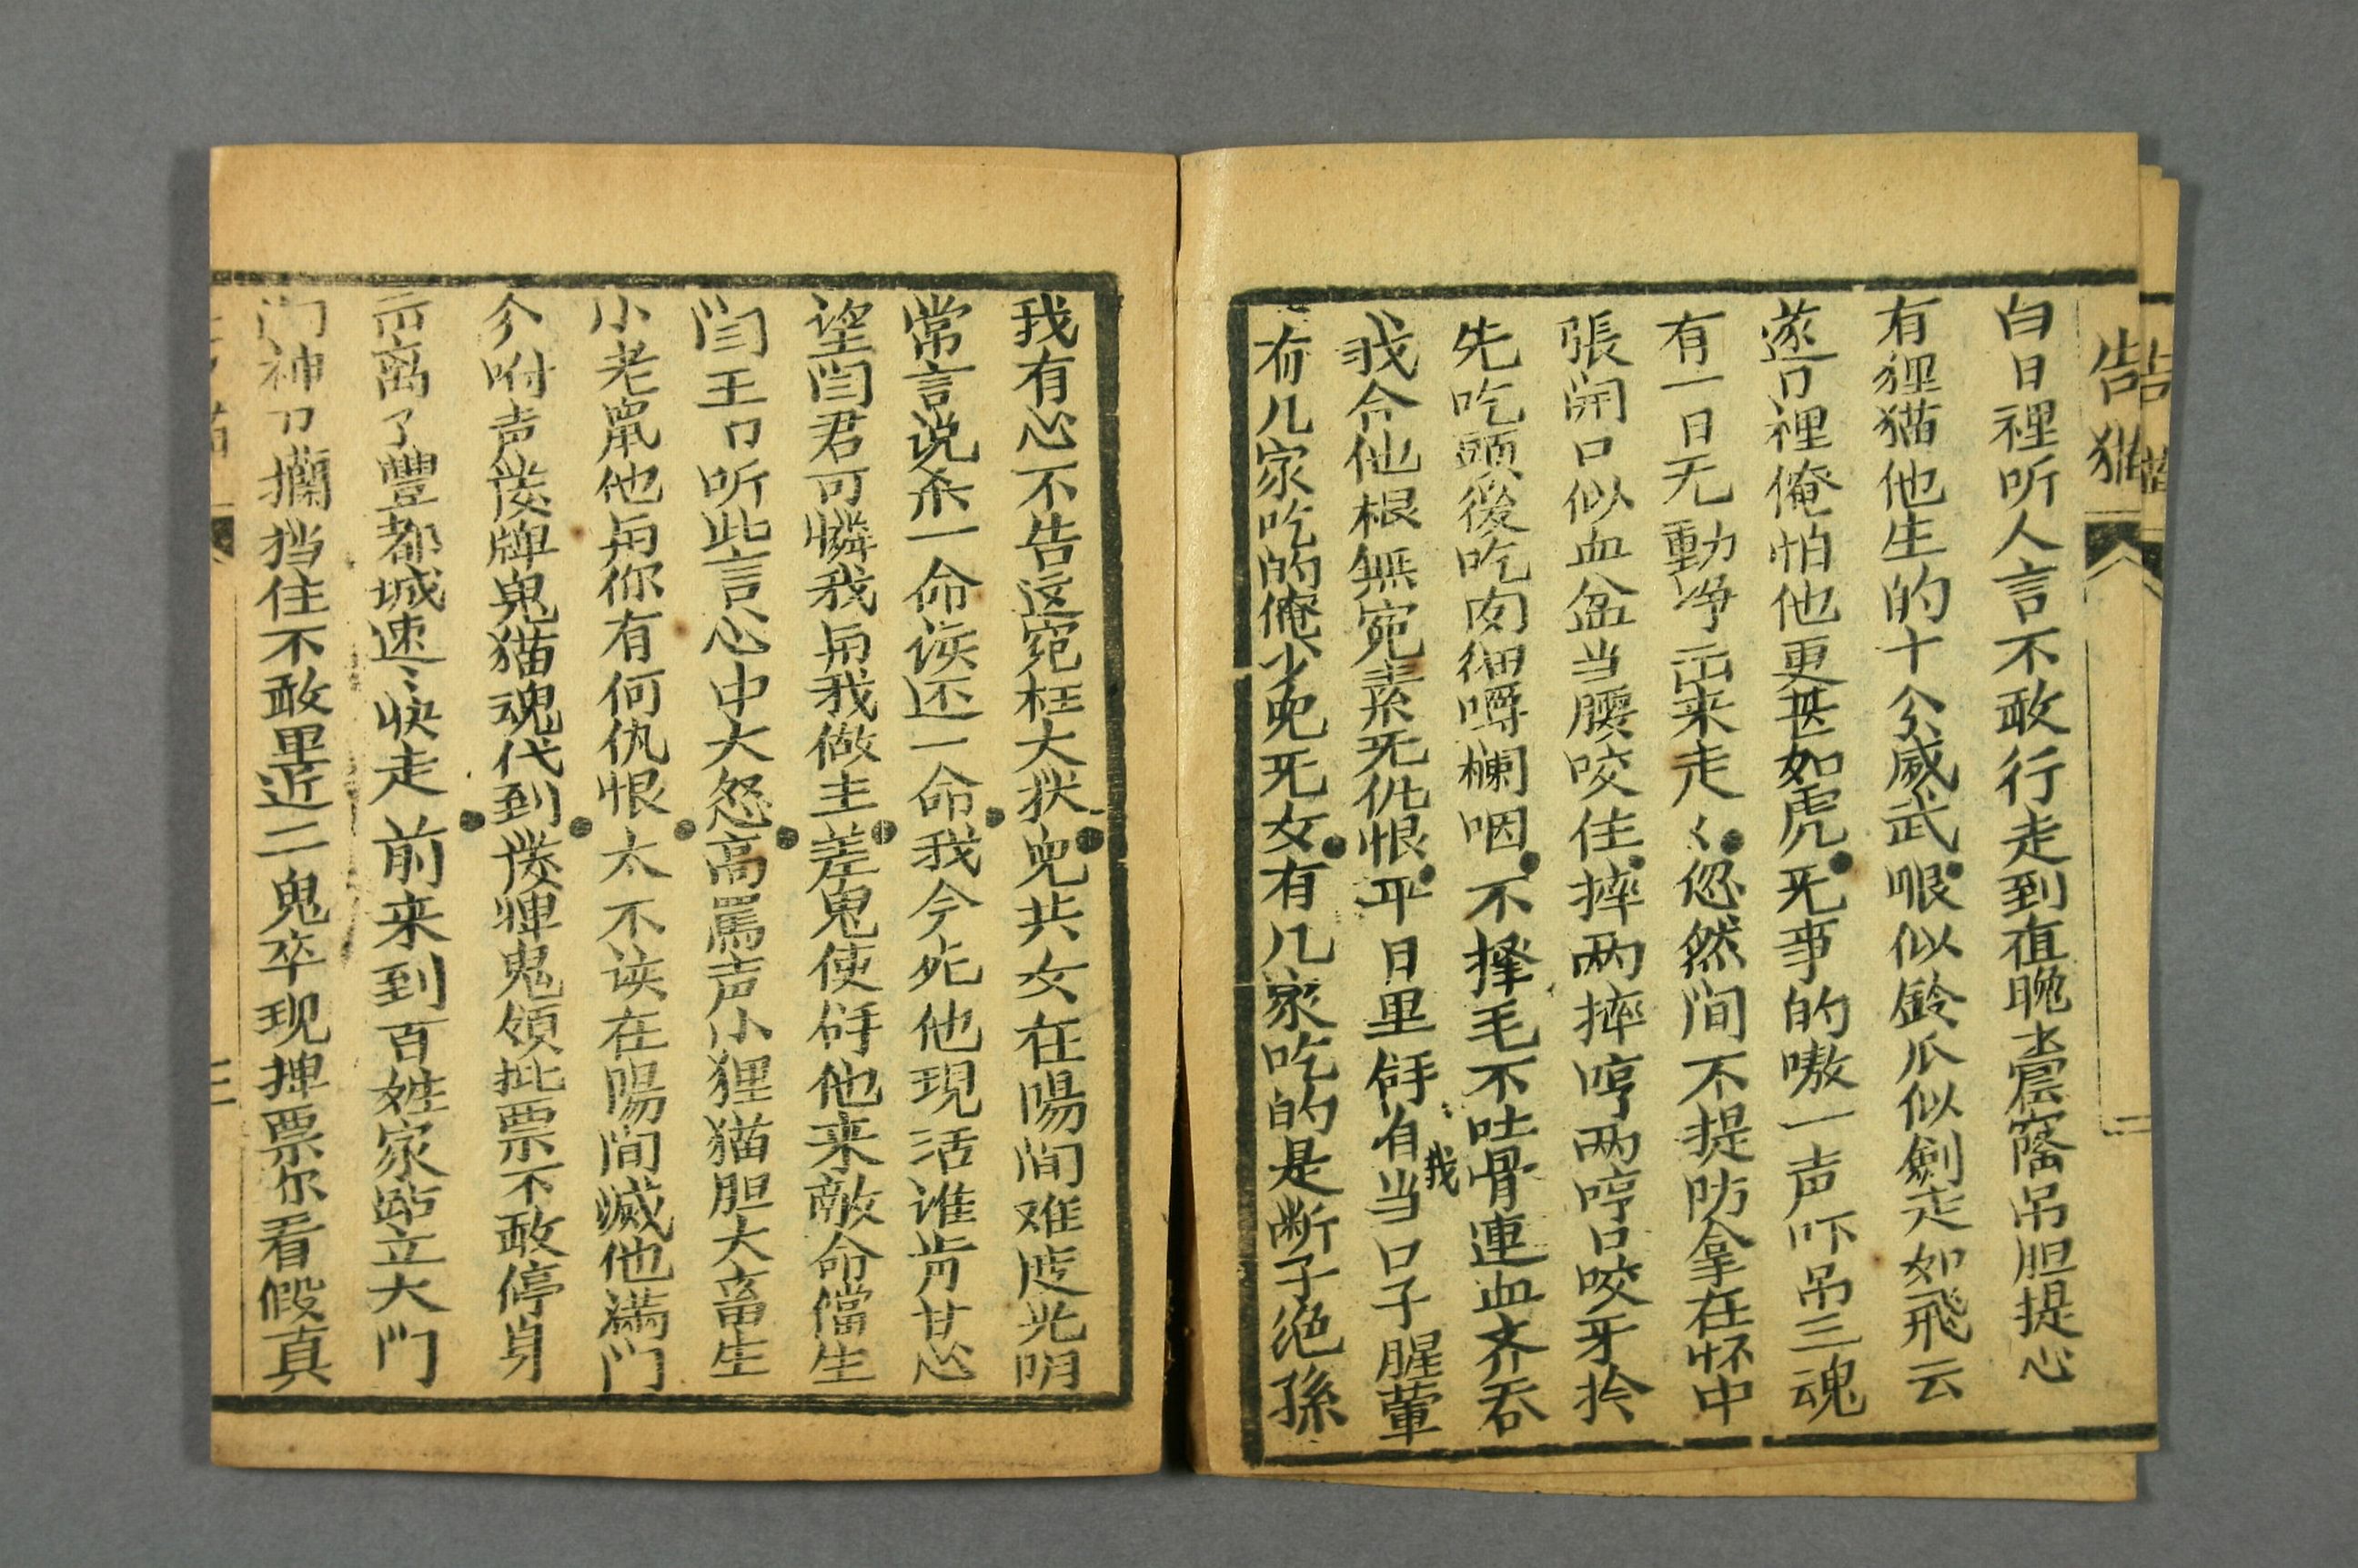 告猫
二
白日裡听人言不敢行走到夜晚出窟窿吊胆提心
有狸猫他生的十分威武眼似鈴爪似劍走如飛云
遂口裡俺怕他更甚如虎无事的嗷一声吓吊三魂
有一日无動净出来走〻忽然间不提防拿在怀中
張開口似血盆当腰咬住摔两摔哼两哼口咬牙拎
先吃頭後吃肉细嚼欄咽不择毛不吐骨連血齐吞
我合他根無冤素无仇恨平日里𢫾有我当口子腥葷
有几家吃的俺少兒无女有几家吃的是断子绝孫
我有心不告这冤枉大狱兒共女在陽间难度光明
常言说杀一命该还一命我今死他現活谁肯甘心
望闫君可憐我与我做主差鬼使𢫾他来敵命償生
闫王口听此言心中大怒高罵声小狸猫胆大畜生
小老鼠他与你有何仇恨太不该在陽间滅他满门
分咐声傻牌鬼猫魂代到傻牌鬼领批票不敢停身
出离了豐都城速〻快走前来到百姓家跕立大门
门神口攔挡住不敢里近二鬼卒现牌票尔看假真
猫
三